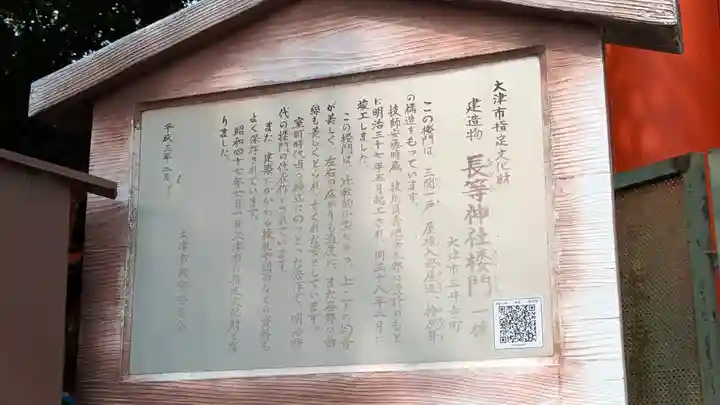 大津市指定文化財
建造物 長等神社楼門 一棟
大津市三井寺町
この楼門は、三間一戸、屋根入母屋造、檜皮葺
の構造をもっています。
技師安藤時蔵、技手青池安太郎の設計のもと
に明治三十七年五月起工され、同三十八年二月に
竣工しました。
この楼門は、比較的小型ながら、上、下の均衡
が美しく、左右の広がりも適度に、また各部の曲
線も美しくつくられ、すぐれた姿をしています。
室町時代頃の様式にのっとった秀作で、明治時
代の楼門の代表作とされています。
また、建築にかかわる
よく保存されています。
昭和四十七年二月一日大津市の指定文化財とな
りました。
平成二年二月
大津市教育委員会